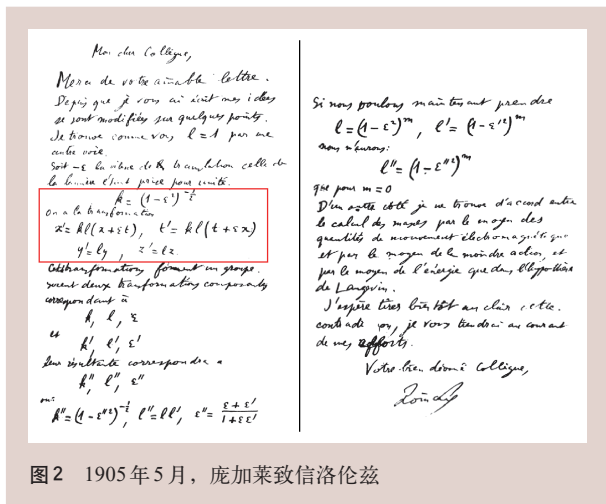 Mon cher Collègue,
Merci de votre aimable lettre.
Depuis que je vous ai écrit mes idées
se sont modifiées sur quelques points.
Je trouve comme vous l = 1 par une
autre voie.
Soit -ε la vitesse de la translation celle de
la lumière étant prise pour unité.
k = (1-ε²)^{-1/2}
On a la transformation
x' = kl(x+εt), t' = kl(t+εx)
y' = ly, z' = lz.
Ces transformations forment un groupe.
Soient deux transformations composantes
correspondant à
k, l, ε
et
k', l', ε'
leur résultante correspondra à
k'', l'', ε''
où:
k'' = (1-ε''²)^{-1/2}, l'' = ll', ε'' = (ε+ε')/(1+εε')
Si nous voulons maintenant prendre
l = (1-ε²)^m, l' = (1-ε'²)^m
nous n'aurons:
l'' = (1-ε''²)^m
que pour m = 0
D'un autre côté je ne trouve d'accord entre
le calcul des masses par le moyen des
quantités de mouvement électromagnétique
et par le moyen de la moindre action, et
par le moyen de l'énergie que dans l'hypothèse
de Langevin.
J'espère tirer bientôt au clair cette
contradiction, je vous tiendrai au courant
de mes efforts.
Votre bien dévoué Collègue,
Poincaré
图2 1905年5月，庞加莱致信洛伦兹